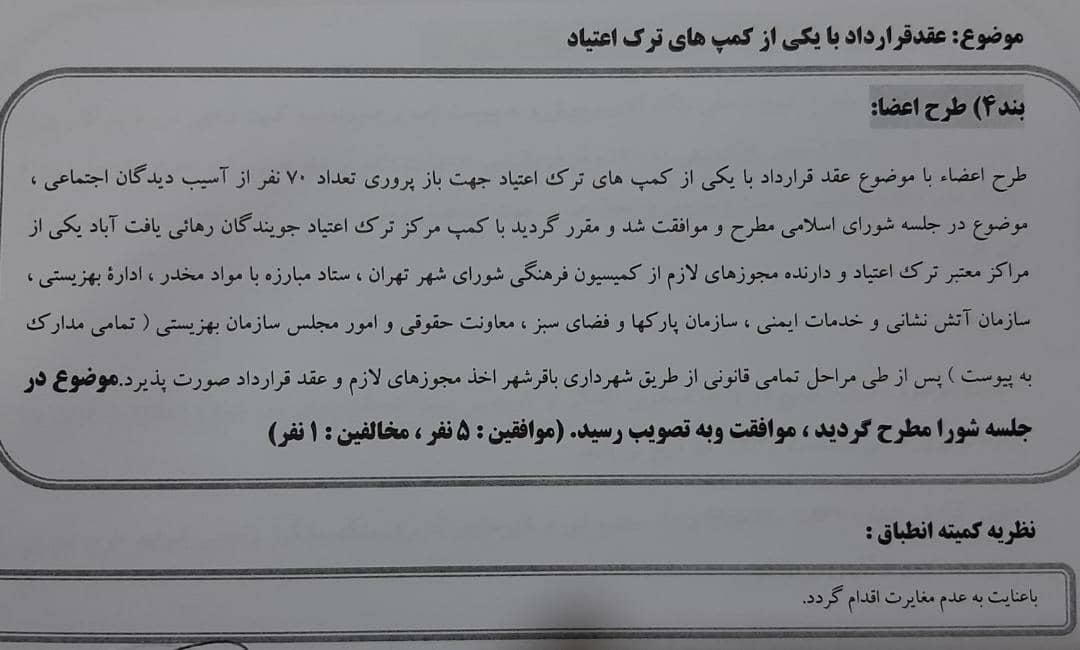 موضوع: عقدقرارداد با یکی از کمپ های ترک اعتیاد
بند۴) طرح اعضا:
طرح اعضاء با موضوع عقد قرارداد با یکی از کمپ های ترک اعتیاد جهت باز پروری تعداد ۷۰ نفر از آسیب دیدگان اجتماعی ،
موضوع در جلسه شورای اسلامی مطرح و موافقت شد و مقرر گردید با کمپ مرکز ترک اعتیاد جویندگان رهائی یافت آباد یکی از
مراکز معتبر ترک اعتیاد و دارنده مجوزهای لازم از کمیسیون فرهنگی شورای شهر تهران ، ستاد مبارزه با مواد مخدر ، ادارۀ بهزیستی ،
سازمان آتش نشانی و خدمات ایمنی ، سازمان پارکها و فضای سبز ، معاونت حقوقی و امور مجلس سازمان بهزیستی ( تمامی مدارک
به پیوست ) پس از طی مراحل تمامی قانونی از طریق شهرداری باقرشهر اخذ مجوزهای لازم و عقد قرارداد صورت پذیرد.موضوع در
جلسه شورا مطرح گردید ، موافقت وبه تصویب رسید. (موافقین : ۵ نفر ، مخالفین : ۱ نفر)
نظریه کمیته انطباق :
باعنایت به عدم مغایرت اقدام گردد.